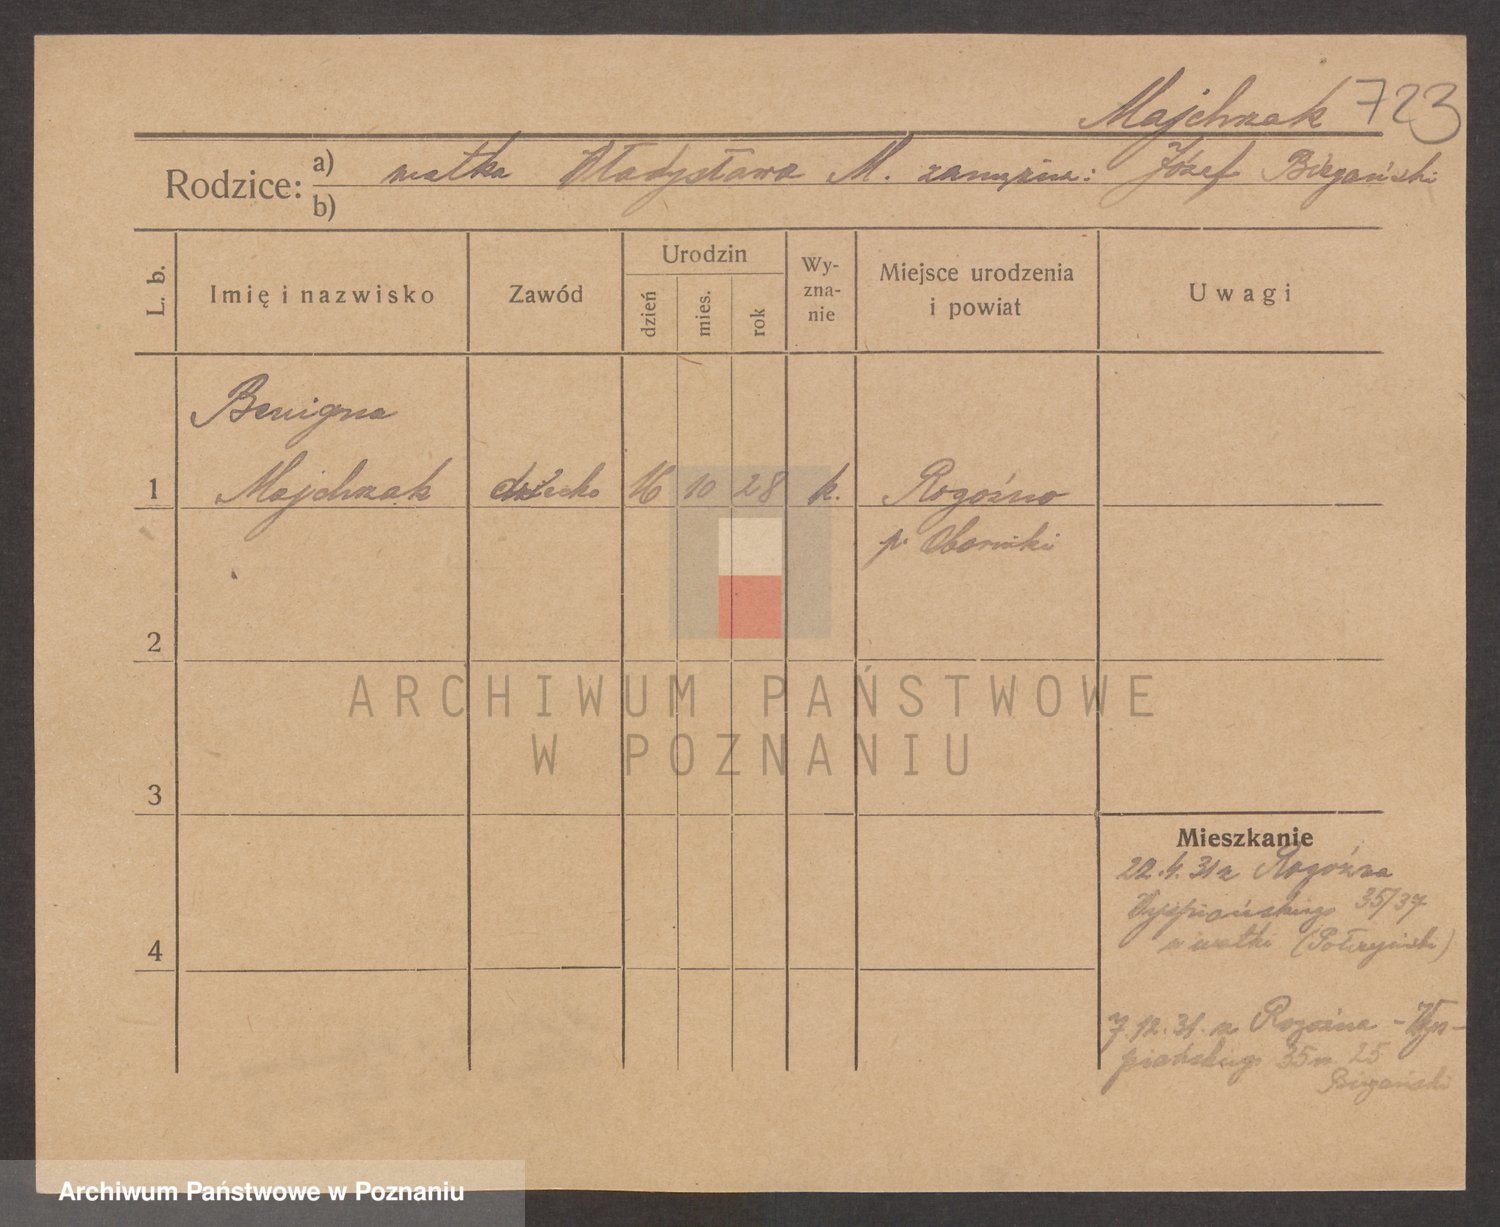 Majchrzak 723
Rodzice:
a) matka Władysława M. zamężna: Józef Biegański
b)
L. b.
Imię i nazwisko
Zawód
Urodzin
dzień
mies.
rok
Wy-
zna-
nie
Miejsce urodzenia
i powiat
Uwagi
Benigna
1 Majchrzak dziecko 16 10 28 k. Rogoźno
p. Oborniki
2
3
4
Mieszkanie
22.4.31 z Rogoźna
Wyspiańskiego 35/37
u matki
7.12.31. z Rogoźna - Wys-
piańskiego 35 m. 25
Biegański
ARCHIWUM PAŃSTWOWE
W POZNANIU
Archiwum Państwowe w Poznaniu